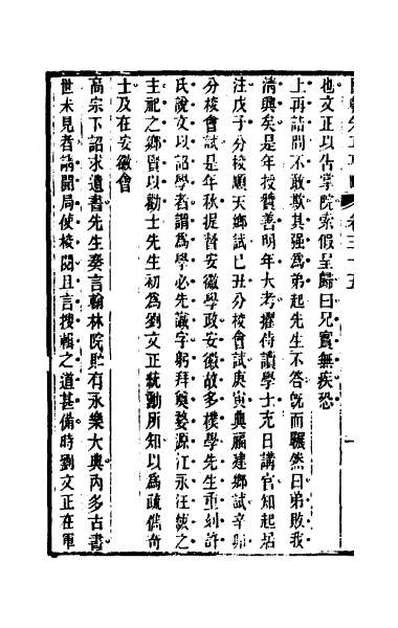 卷三十五
一
也文正以告掌院索假呈歸曰兄實無疾恐
上再詰問不敢欺其强爲弟起先生不答旣而驪然曰弟敗我
清興矣是年授贊善明年大考擢侍讀學士充日講官知起居
注戊子分校順天鄉試已丑分校會試庚寅典福建鄉試辛卯
分校會試是年秋提督安徽學政安徽故多樸學先生重刻許
氏說文以詔學者謂爲學必先識字躬拜奠婺源江永汪紱之
主祀之鄉賢以勸士先生初爲劉文正統勳所知以爲疏儁奇
士及在安徽會
高宗下詔求遺書先生奏言翰林院貯有永樂大典內多古書
世未見者請開局使校閱且言搜輯之道甚備時劉文正在軍